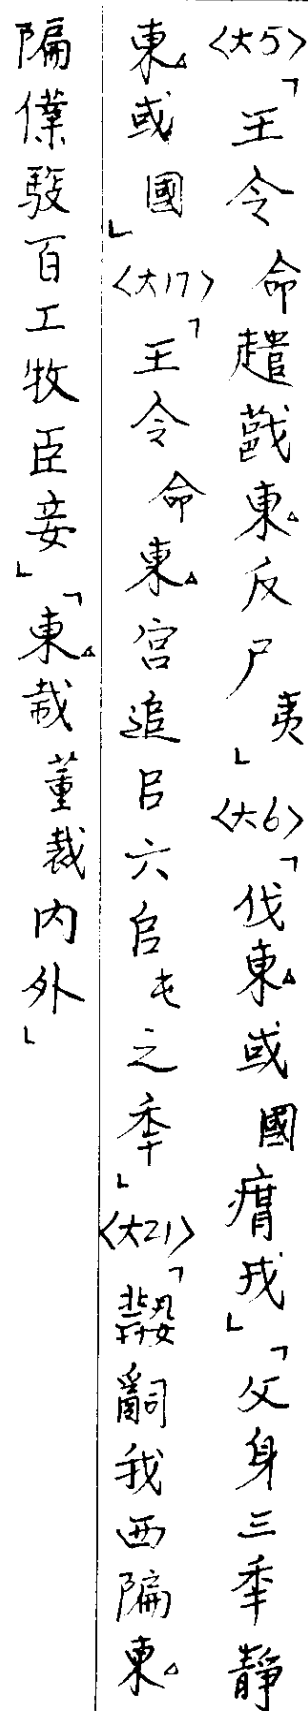 <大5>「王令命趞𢧢東△反尸夷」<大6>「伐東△或國痟戎」「父身三年靜
東△或國」<大17>「王令命東△宮追㠯六𠂤屯之年」<大21>「嗣我西隔東△
隔僕駿百工牧臣妾」「東△裁董裁內外」